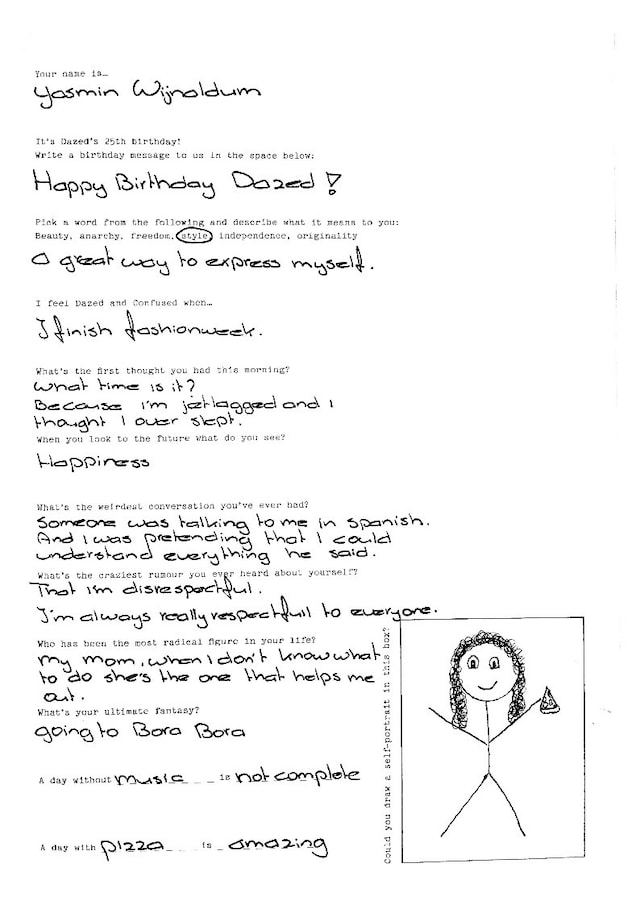 Your name is…
Yasmin Wijnaldum
It's Dazed's 25th birthday!
Write a birthday message to us in the space below:
Happy Birthday Dazed!
Pick a word from the following and describe what it means to you:
Beauty, anarchy, freedom, style, independence, originality
A great way to express myself.
I feel Dazed and Confused when…
I finish fashionweek.
What's the first thought you had this morning?
What time is it?
Because i'm jetlagged and i
thought I over slept.
When you look to the future what do you see?
Happiness
What's the weirdest conversation you've ever had?
Someone was talking to me in spanish.
And I was pretending that I could
understand everything he said.
What's the craziest rumour you ever heard about yourself?
That I'm disrespectful.
I'm always really respectfull to everyone.
Who has been the most radical figure in your life?
My mom, when I don't know what
to do she's the one that helps me
out.
What's your ultimate fantasy?
going to Bora Bora
A day without music _ _ is not complete
A day with pizza_ _ _ is _ amazing
Could you draw a self-portrait in this box?